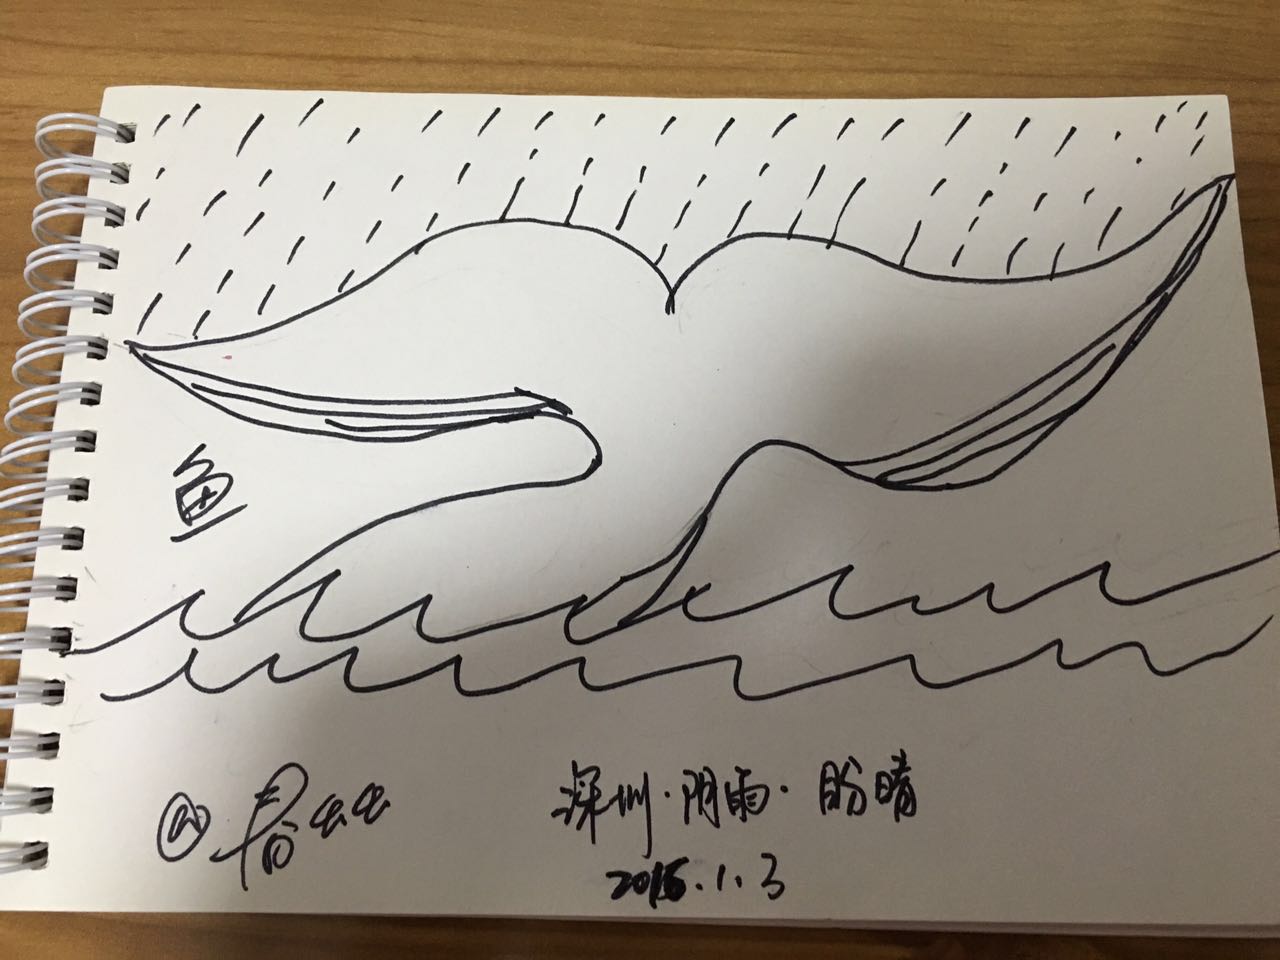 鱼
深圳·阴雨·盼晴
2016.1.3